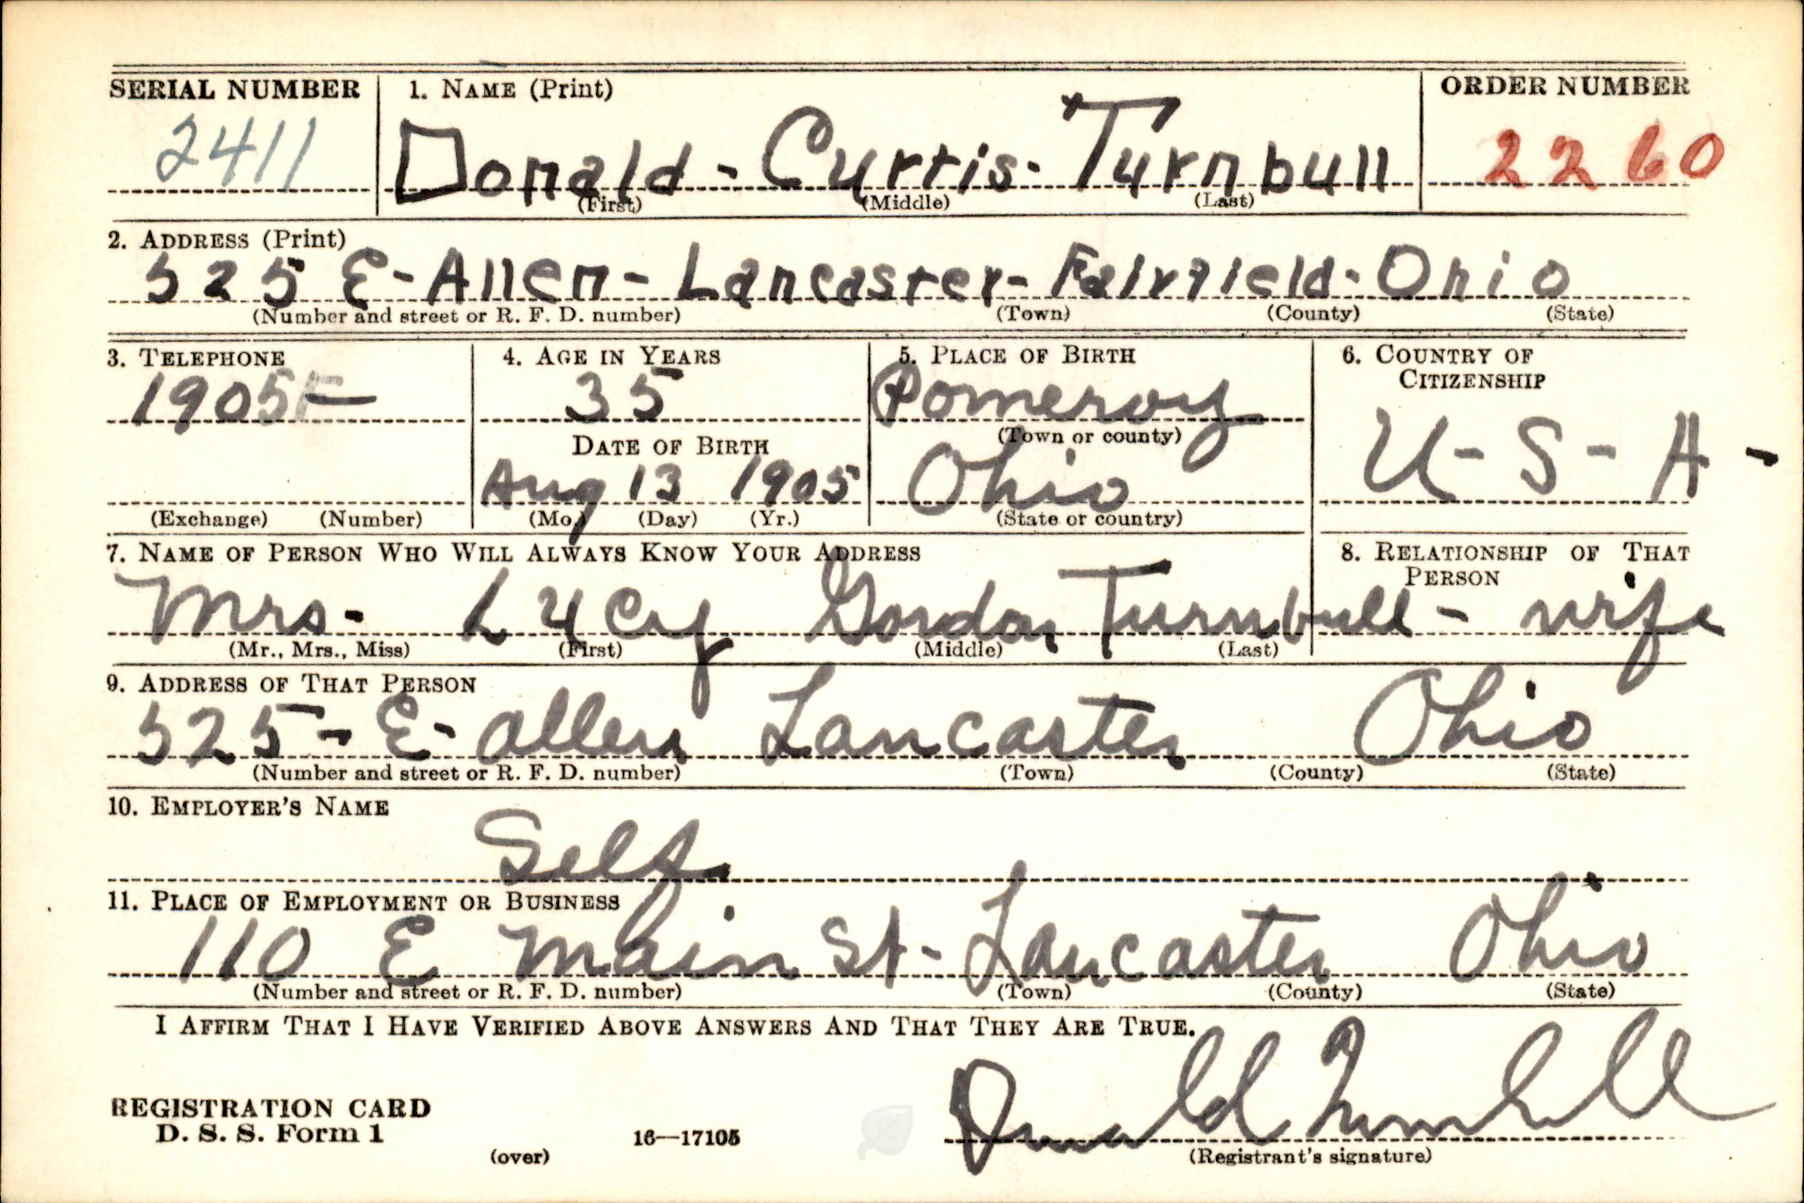 SERIAL NUMBER 1. NAME (Print) ORDER NUMBER
2411 Donald - Curtis - Turnbull 2260
(First) (Middle) (Last)
2. ADDRESS (Print)
525 E - Allen - Lancaster - Fairfield - Ohio
(Number and street or R. F. D. number) (Town) (County) (State)
3. TELEPHONE 4. AGE IN YEARS 5. PLACE OF BIRTH 6. COUNTRY OF CITIZENSHIP
1905 35 Pomeroy
(Town or county)
DATE OF BIRTH U - S - A -
Aug 13 1905 Ohio
(Exchange) (Number) (Mo.) (Day) (Yr.) (State or country)
7. NAME OF PERSON WHO WILL ALWAYS KNOW YOUR ADDRESS 8. RELATIONSHIP OF THAT PERSON
Mrs - Lucy Gordon Turnbull - wife
(Mr., Mrs., Miss) (First) (Middle) (Last)
9. ADDRESS OF THAT PERSON
525 - E - Allen Lancaster Ohio
(Number and street or R. F. D. number) (Town) (County) (State)
10. EMPLOYER'S NAME
Self.
11. PLACE OF EMPLOYMENT OR BUSINESS
110 E Main St - Lancaster Ohio
(Number and street or R. F. D. number) (Town) (County) (State)
I AFFIRM THAT I HAVE VERIFIED ABOVE ANSWERS AND THAT THEY ARE TRUE.
Donald Turnbull
REGISTRATION CARD
D. S. S. Form 1 16—17105
(over) (Registrant's signature)